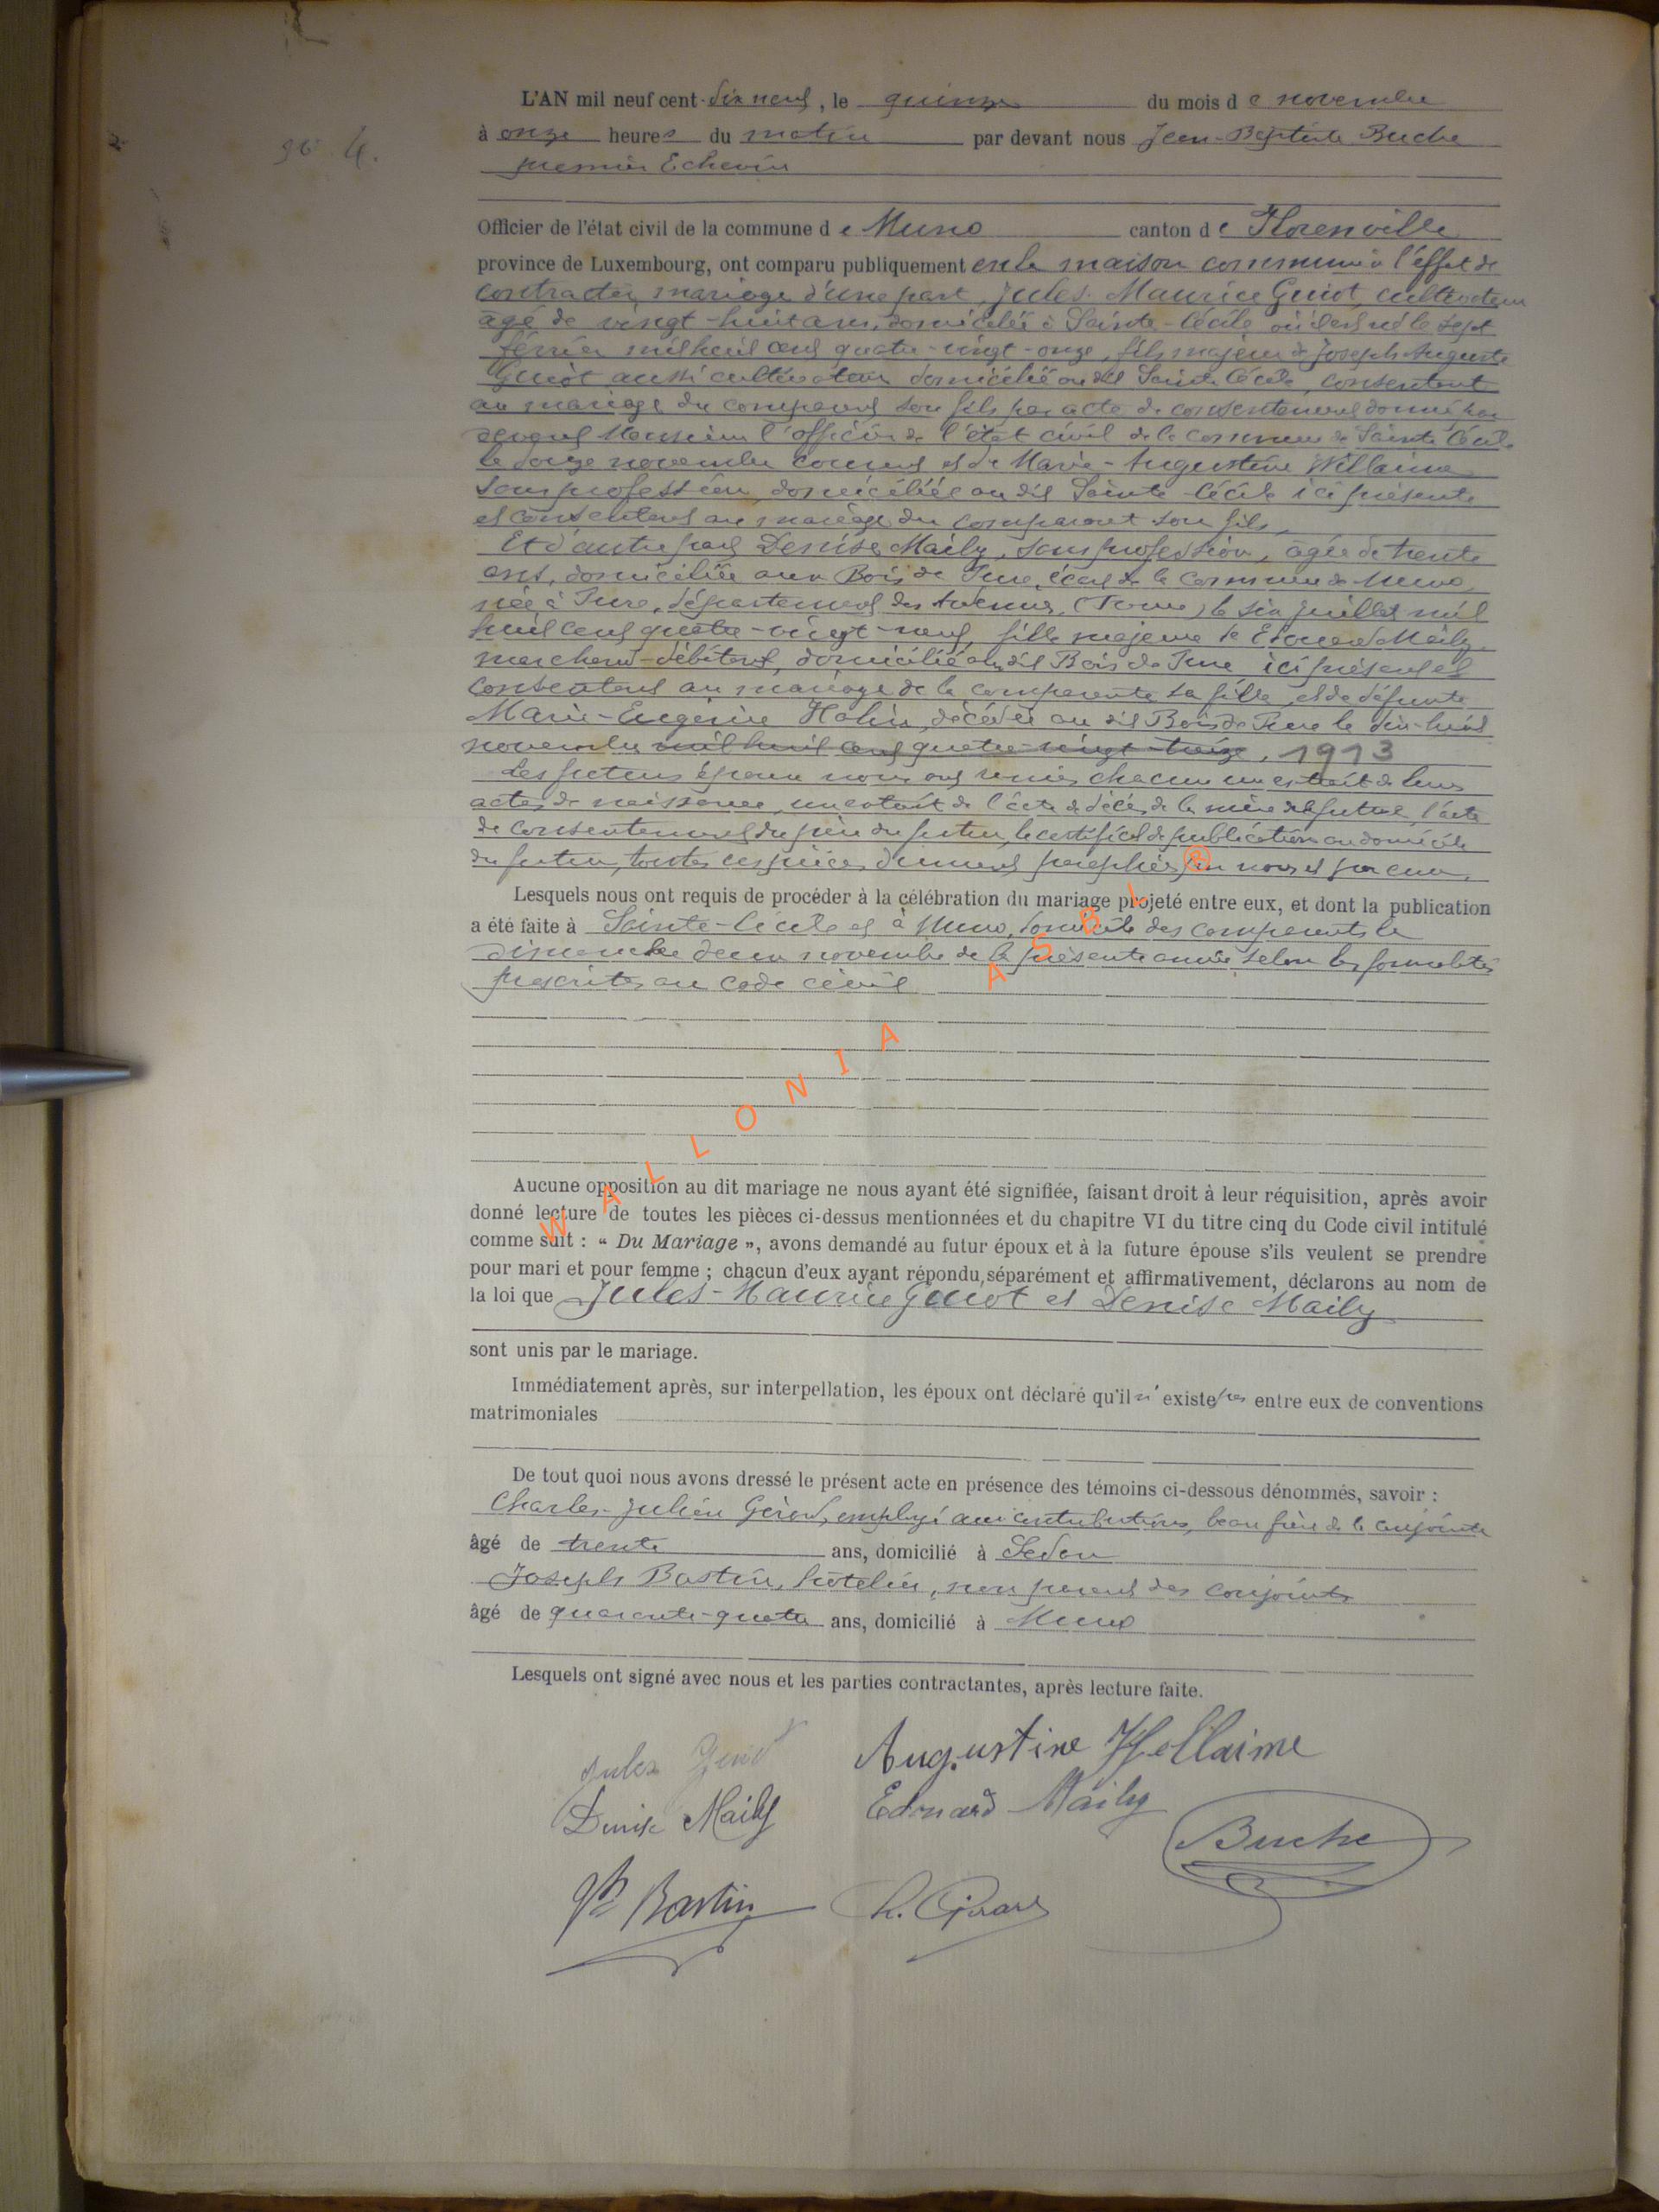 L'AN mil neuf cent dix neuf, le quinze du mois de novembre
N° 4.
à onze heures du matin par devant nous Jean-Baptiste Buche
premier Echevin
Officier de l'état civil de la commune de Muno canton de Florenville
province de Luxembourg, ont comparu publiquement en la maison commune à l'effet de
contracter mariage d'une part, Jules Maurice Guiot, cultivateur
âgé de vingt-huit ans, domicilié à Sainte-Cécile où il est né le sept
février mil huit cent quatre-vingt-onze, fils majeur de Joseph Auguste
Guiot aussi cultivateur domicilié au dit Sainte Cécile, consentant
au mariage du comparant son fils par acte de consentement donné par
devant Monsieur l'officier de l'état civil de la commune de Sainte Cécile
le douze novembre courant et de Marie-Augustine Willaime
sans profession, domiciliée au dit Sainte-Cécile ici présente
et consentant au mariage du comparant son fils,
Et d'autre part Denise Maily, sans profession, âgée de trente
ans, domiciliée aux Bois de Pure, écart de la commune de Muno,
née à Pure, département des Ardennes, (France) le six juillet mil
huit cent quatre-vingt-neuf, fille majeure de Edouard Maily
marchand-débitant, domicilié au dit Bois de Pure ici présent et
consentant au mariage de la comparante sa fille, et de défunte
Marie-Eugénie Holin, décédée au dit Bois de Pure le dix-huit
novembre mil huit cent quatre-vingt-treize, 1913
Les futurs époux nous ont remis chacun un extrait de leurs
actes de naissance, un extrait de l'acte de décès de la mère de la future, l'acte
de consentement du père du futur, le certificat de publication au domicile
du futur, toutes ces pièces dûment paraphées par nous et par eux.
Lesquels nous ont requis de procéder à la célébration du mariage projeté entre eux, et dont la publication
a été faite à Sainte-Cécile et à Muno, domicile des comparants le
dimanche deux novembre de la présente année selon les formalités
prescrites au code civil
WALLONIA ASBL ®
Aucune opposition au dit mariage ne nous ayant été signifiée, faisant droit à leur réquisition, après avoir
donné lecture de toutes les pièces ci-dessus mentionnées et du chapitre VI du titre cinq du Code civil intitulé
comme suit : “ Du Mariage ”, avons demandé au futur époux et à la future épouse s'ils veulent se prendre
pour mari et pour femme ; chacun d'eux ayant répondu séparément et affirmativement, déclarons au nom de
la loi que Jules-Maurice Guiot et Denise Maily
sont unis par le mariage.
Immédiatement après, sur interpellation, les époux ont déclaré qu'il n'existe pas entre eux de conventions
matrimoniales
De tout quoi nous avons dressé le présent acte en présence des témoins ci-dessous dénommés, savoir :
Charles-Julien Girard, employé aux contributions, beau frère de la conjointe
âgé de trente ans, domicilié à Sedan
Joseph Bastin, hôtelier, non parent des conjoints
âgé de quarante-quatre ans, domicilié à Muno
Lesquels ont signé avec nous et les parties contractantes, après lecture faite.
Jules Guiot Augustine Willaime
Denise Maily Edouard Maily
Buche
Jph Bastin Ch. Girard